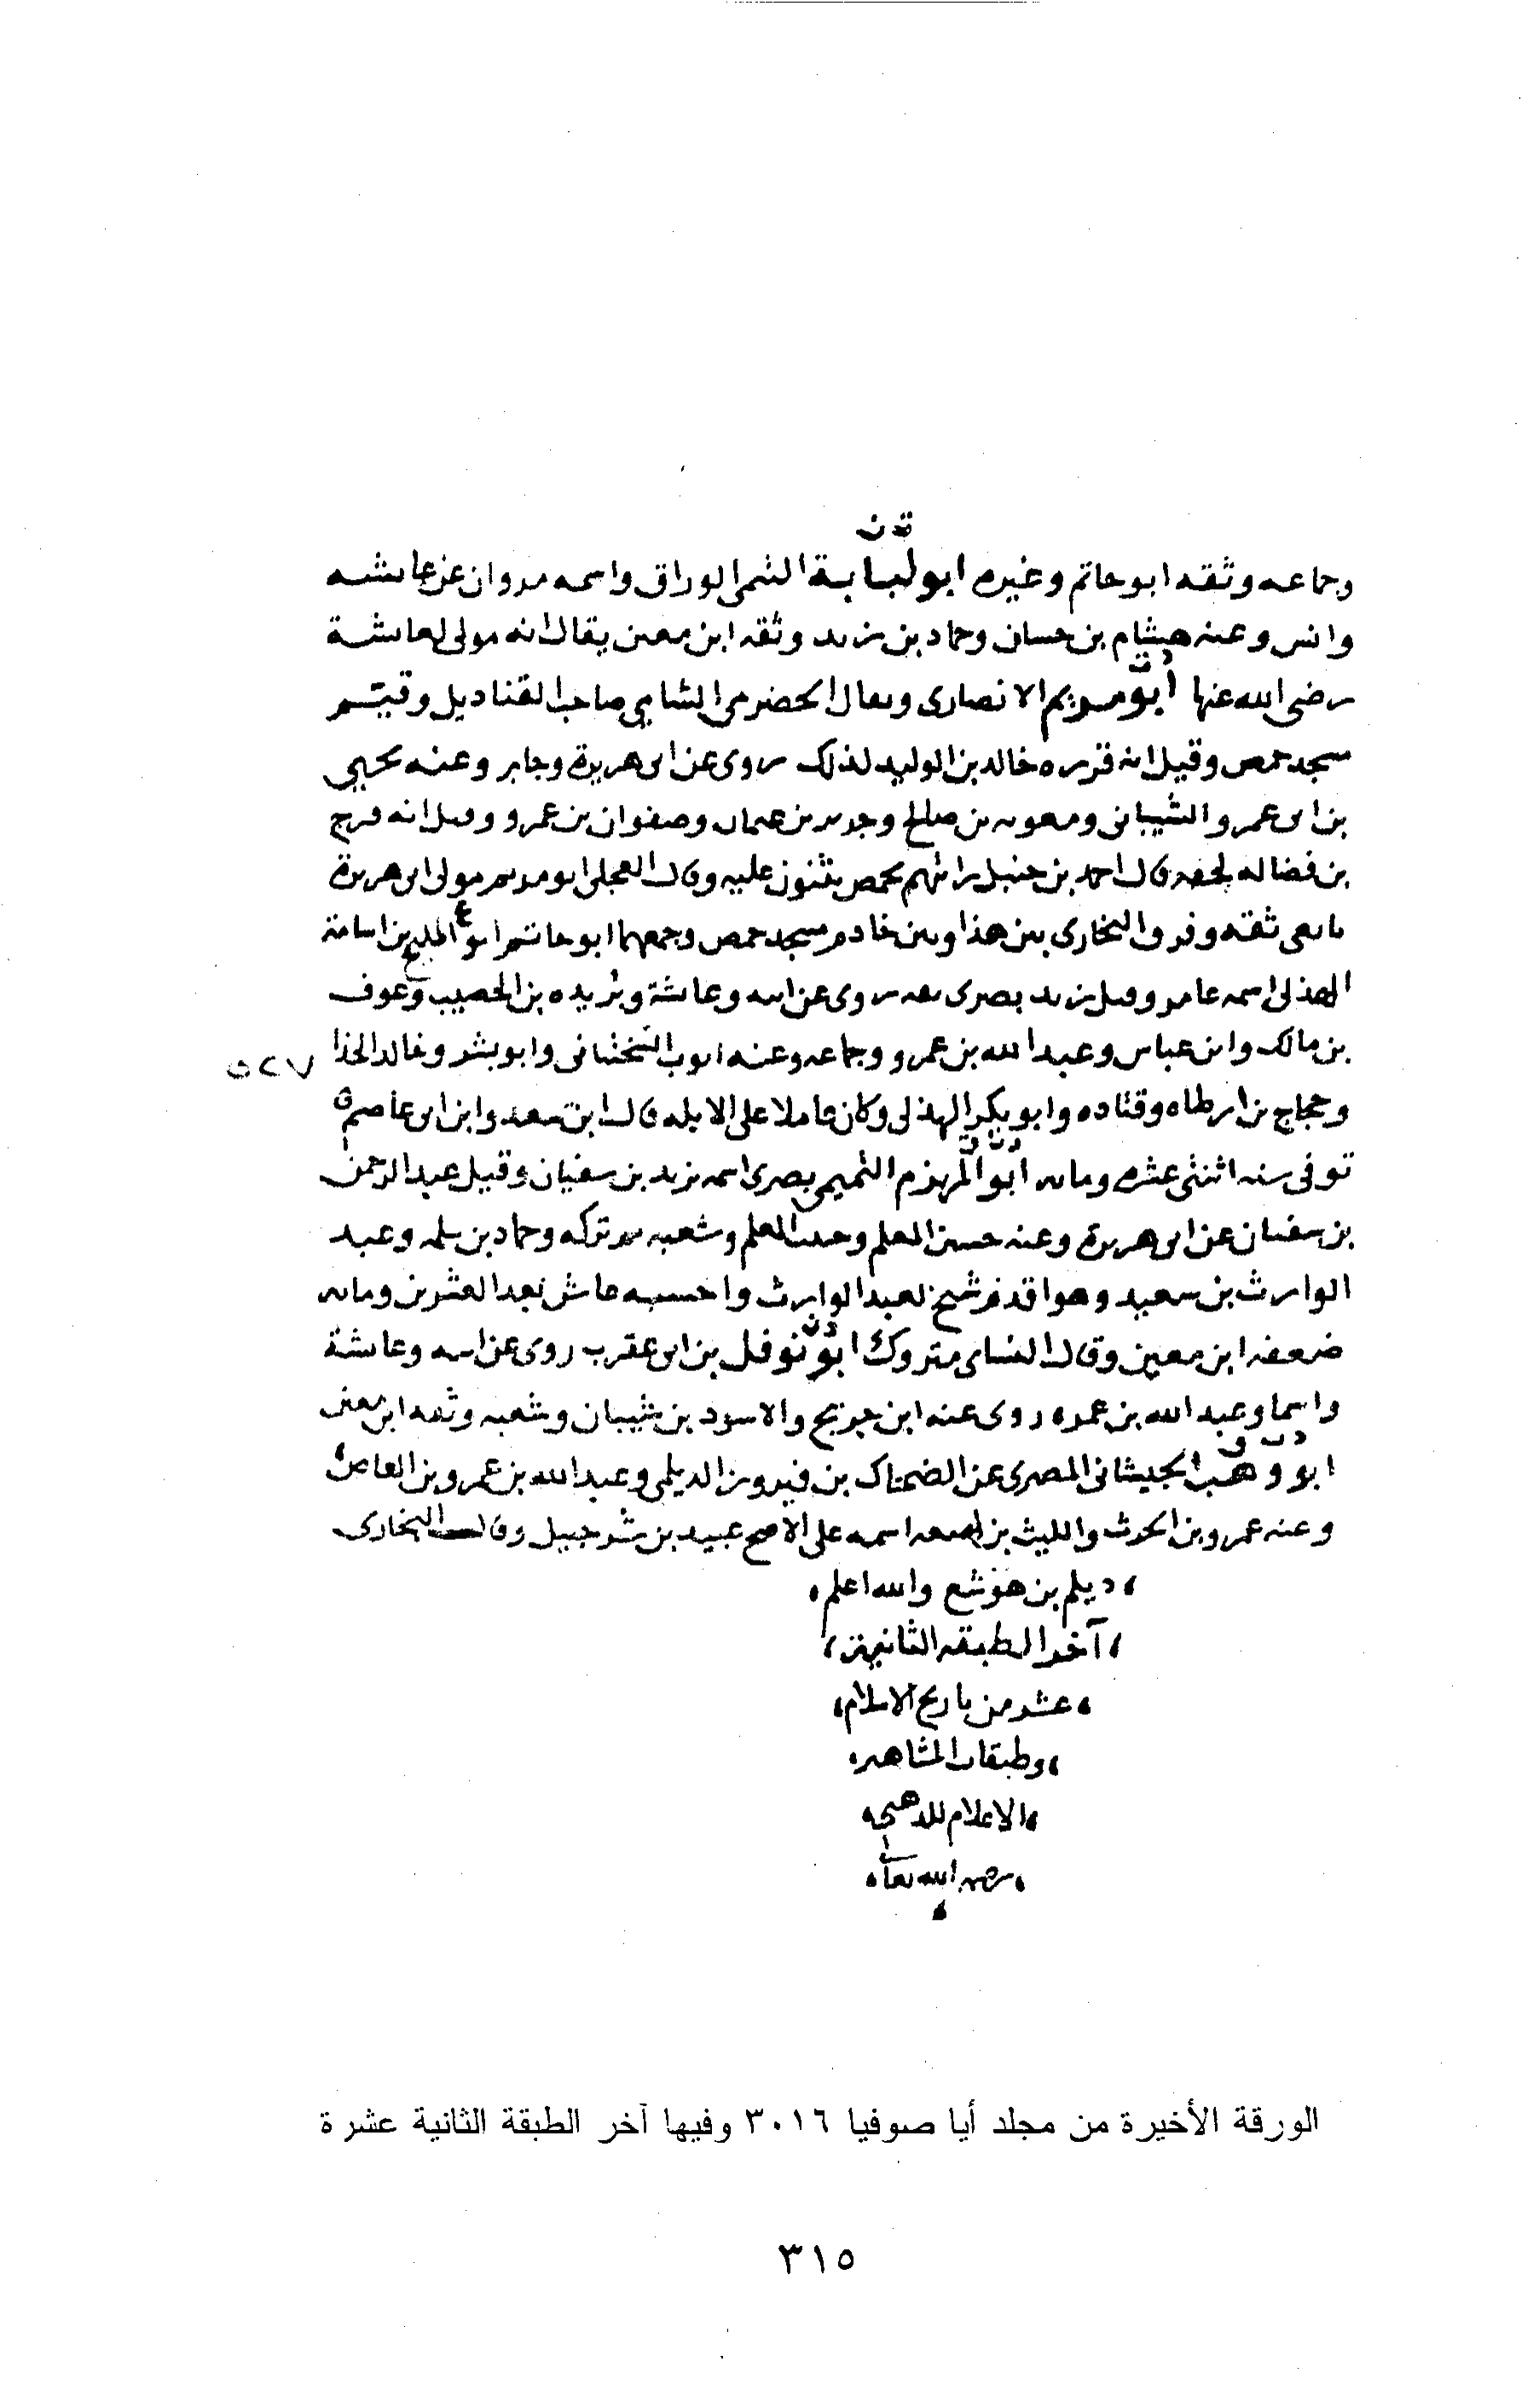 ت ن
وجماعه وثقه ابو حاتم وغيره ابو لبابة التيمى الوراق واسمه مروان عن عايشه
وانس وعنه هشام بن حسان وحماد بن زيد وثقه ابن معين يقال انه مولى لعايشة
د ت
رضى الله عنها ابو مريم الانصارى ويقال الحضرمى الشامي صاحب القناديل وقيّم
مسجد حمص وقيل انه قرره خالد بن الوليد لذلك روى عن ابى هريرة وجابر وعنه يحيي
بن ابى عمرو الشيبانى ومعويه بن صالح وجرير بن عثمان وصفوان بن عمرو وقيل انه فرج
بن فضاله لحقه قال احمد بن حنبل رايتهم بحمص يثنون عليه وقال العجلى ابو مريم مولى ابى هريرة
تابعى ثقه وفرق البخارى بين هذا وبين خادم مسجد حمص وجمعهما ابو حاتم ابو المليح بن اسامة
ع
الهذلى اسمه عامر وقيل زيد بصرى ثقه روى عن ابيه وعايشة وبُريده بن الحصيب وعوف
بن مالك وابن عباس وعبد الله بن عمرو وجماعه وعنه ايوب السختيانى وابو بشر وخالد الحذا
٥٢٧
وحجاج بن ارطاه وقتاده وابو بكر الهذلى وكان عاملا على الابله قال ابن سعد وابن ابى عاصم
د ت ق
توفى سنه اثنتى عشره ومايه ابو المهزم التميمى بصرى اسمه يزيد بن سفيان وقيل عبد الرحمن
بن سفيان عن ابى هريرة وعنه حسين المعلم وحبيب المعلم وشعبه ثم تركه وحماد بن سلمه وعبد
الوارث بن سعيد وهو اقدم شيخ لعبد الوارث واحسبه عاش بعد العشرين ومايه
ضعفه ابن معين وقال النساى متروك ابو نوفل بن ابى عقرب روى عن ابيه وعايشة
واسما وعبد الله بن عمر روى عنه ابن جريج والاسود بن شيبان وشعبه وثقه ابن معين
د ت ق
ابو وهب الجيشانى المصرى عن الضحاك بن فيروز الديلمى وعبد الله بن عمرو بن العاص
وعنه عمرو بن الحرث والليث بن لهيعه اسمه على الاصح عبيد بن شرحبيل وقال البخارى
ديلم بن هوشع والله اعلم
آخر الطبقه الثانية
عشر من تاريخ الاسلام
وطبقات المشاهير
والاعلام للذهبي
رحمه الله تعالى
الورقة الأخيرة من مجلد أيا صوفيا ٣٠١٦ وفيها آخر الطبقة الثانية عشرة
٣١٥